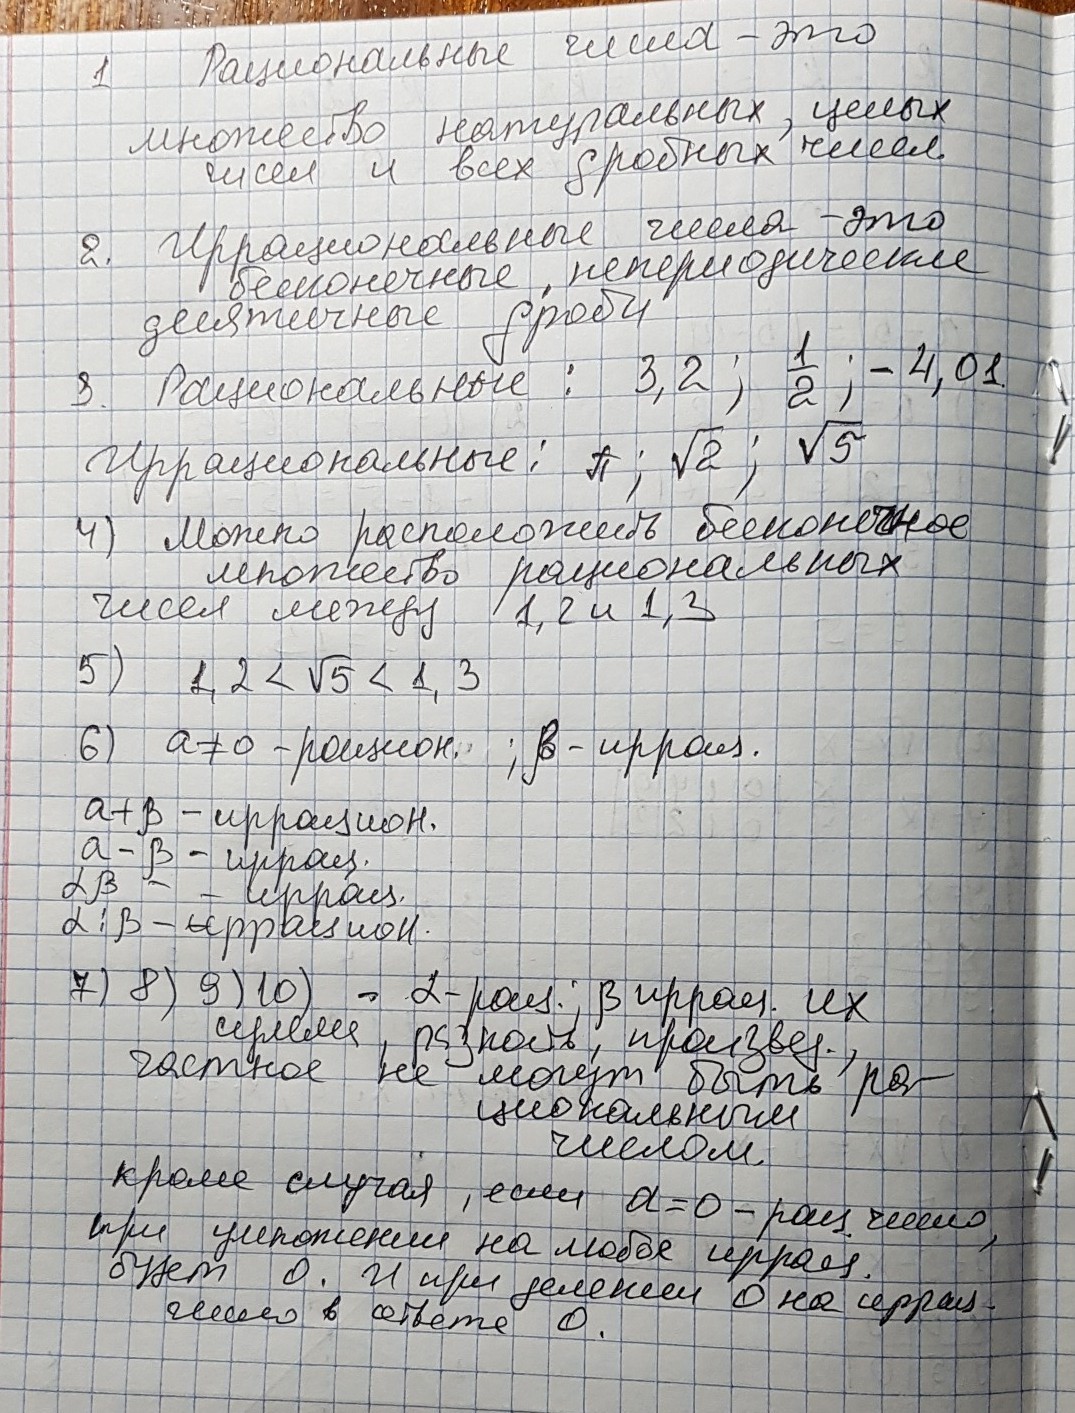 1 Рациональные числа - это
множество натуральных, целых
чисел и всех дробных чисел.
2. Иррациональные числа - это
бесконечные, непериодические
десятичные дроби
3. Рациональные : 3,2 ; 1/2 ; - 4,01.
Иррациональные : π ; √2 ; √5
4) Можно расположить бесконечное
множество рациональных
чисел между 1,2 и 1,3
5) 1,2 < √5 < 1,3
6) a≠0 - рацион. ; β - иррац.
a+β - иррацион.
a - β - иррац.
αβ - - иррац.
α:β - иррацион.
7) 8) 9) 10) - α-рац.; β иррац. их
сумма, разность, произвед.,
частное не могут быть ра-
циональным
числом.
кроме случая, если α=0 - рац. число,
при умножении на любое иррац.
будет 0. И при делении 0 на иррац.
число в ответе 0.